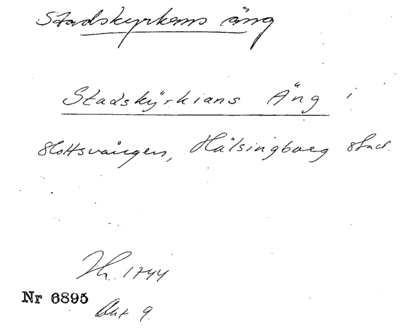 Stadskyrkans äng
Stadskÿrkians Äng i
Slottsvången, Hälsingborg stad.
Hh. 1744
Nr 6895
Akt 9.